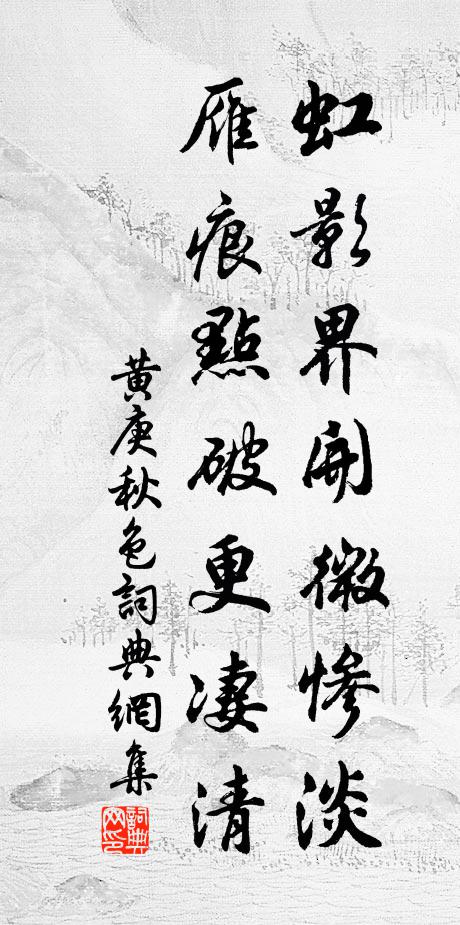 虹影界開微慘淡
雁痕點破更凄清
黃庚秋色詞典網集
詞典網印